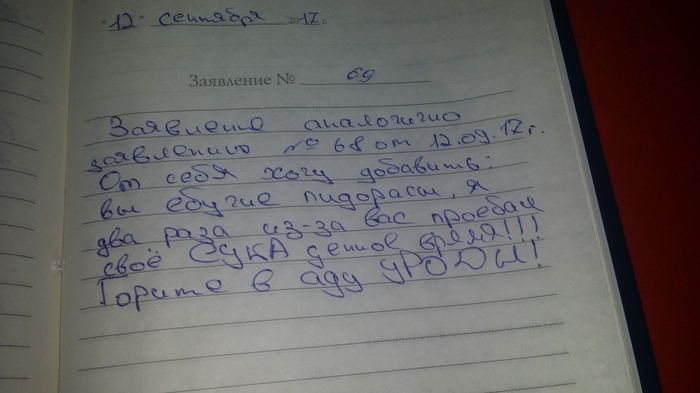 "12" сентября 2017г.
Заявление № 69
Заявление аналогично
заявлению № 68 от 12.09.17г.
От себя хочу добавить:
вы ебучие пидорасы, я
два раза из-за вас проебал
своё СУКА ценное время!!!
Горите в аду УРОДЫ!